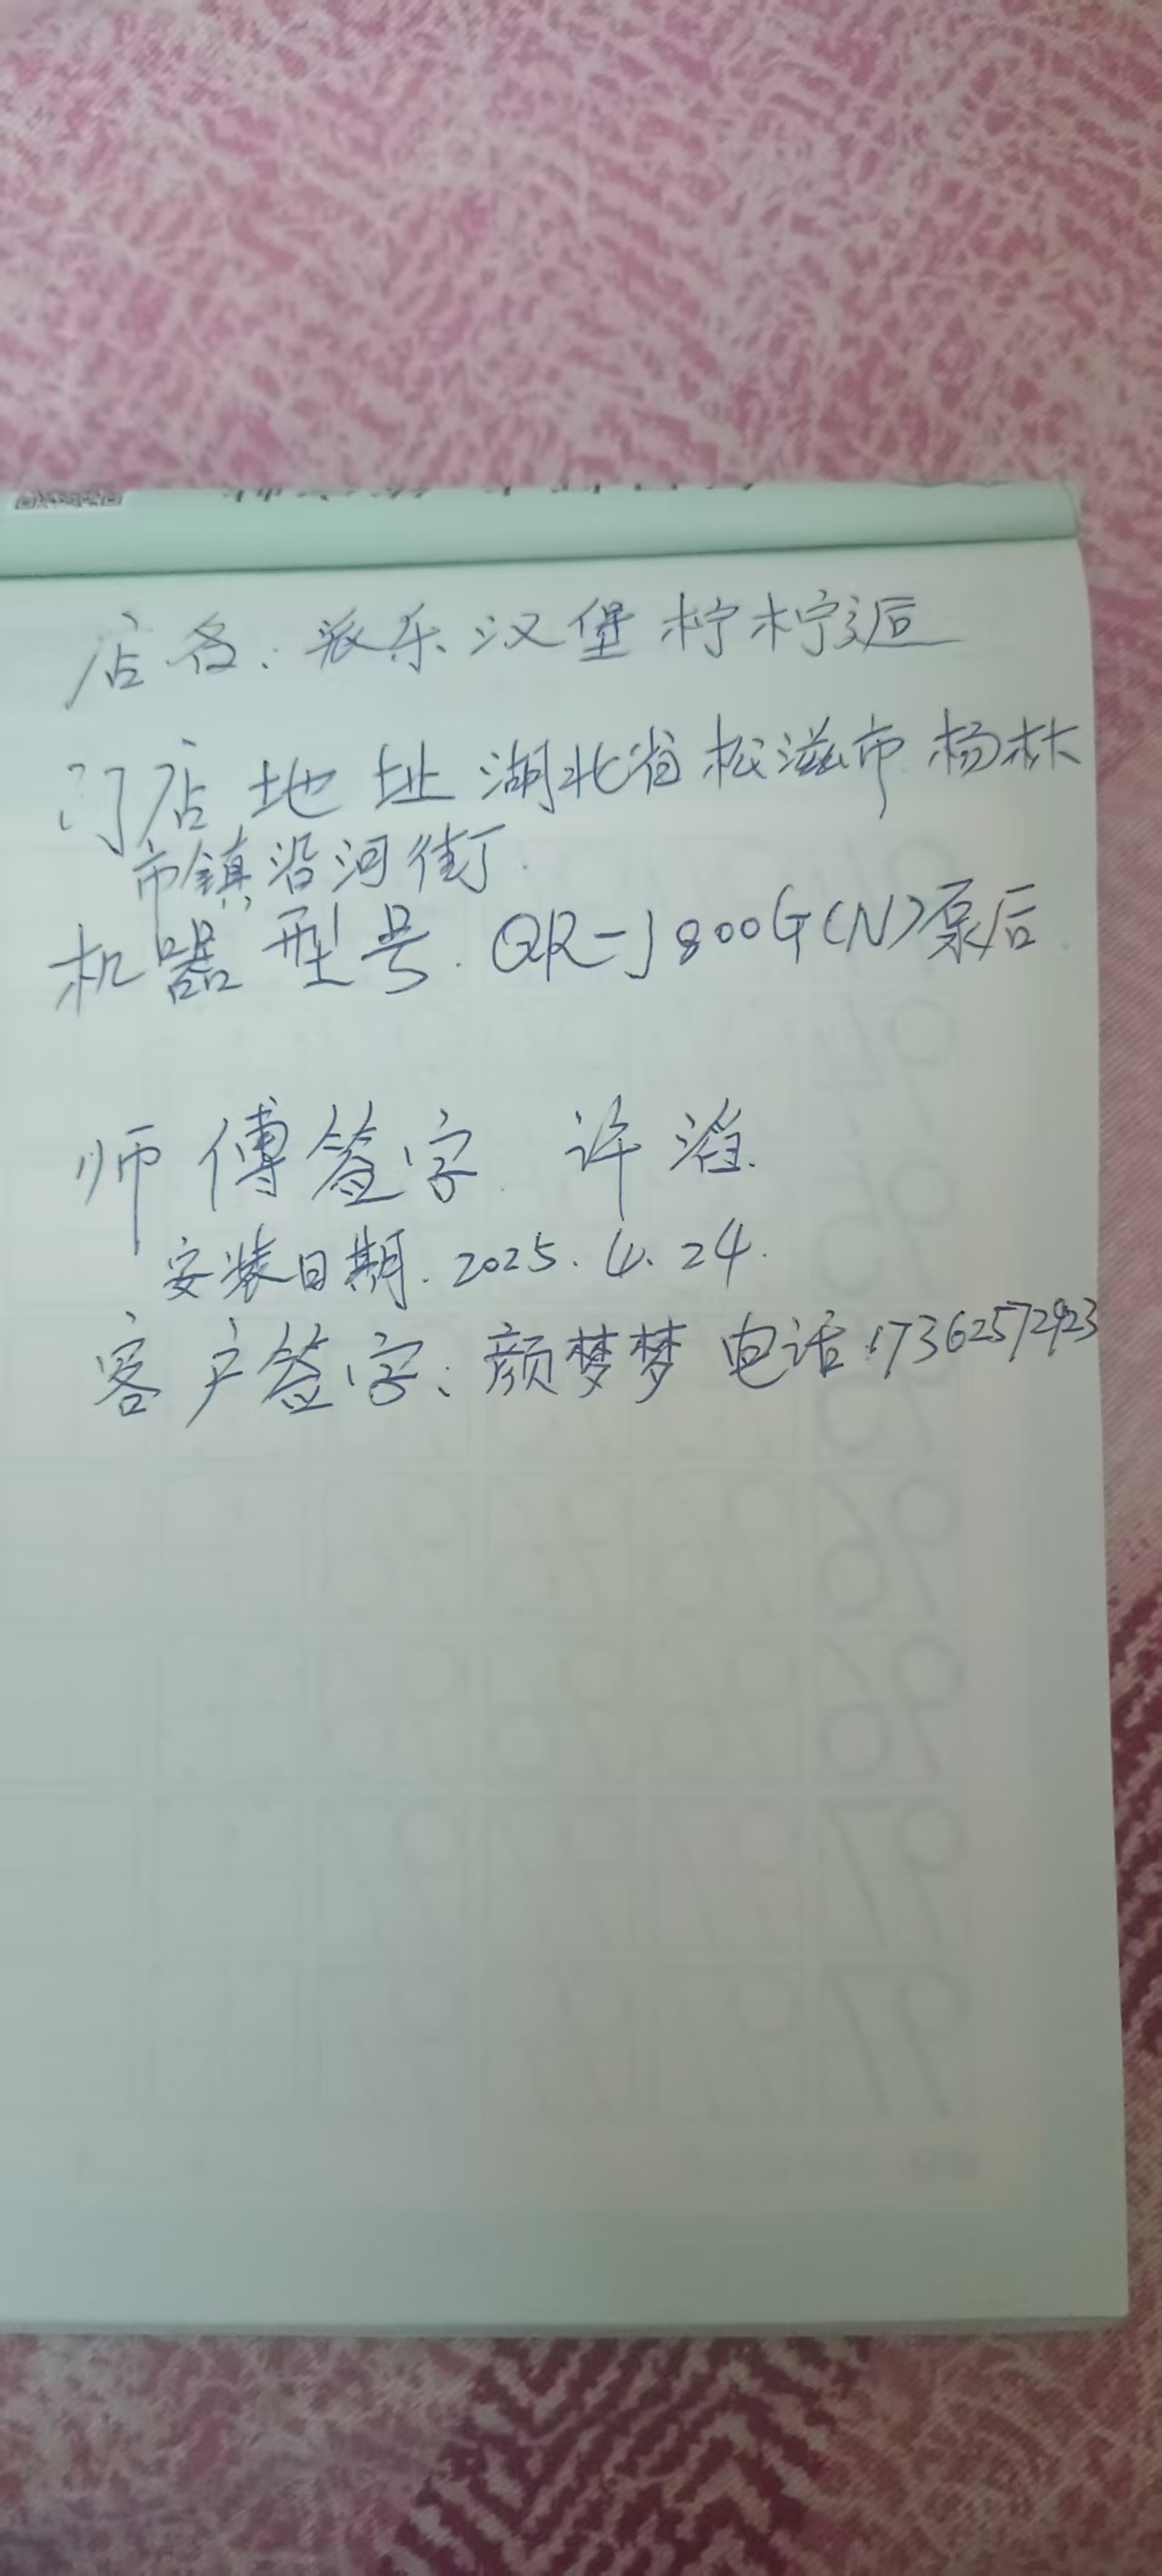 店名:派乐汉堡柠柠逅
门店地址 湖北省松滋市杨林
市镇沿河街丁.
机器型号. QR-J800G(N)泵后
师傅签字 许滔.
安装日期. 2025. 4. 24.
客户签字:颜梦梦 电话:17362572923